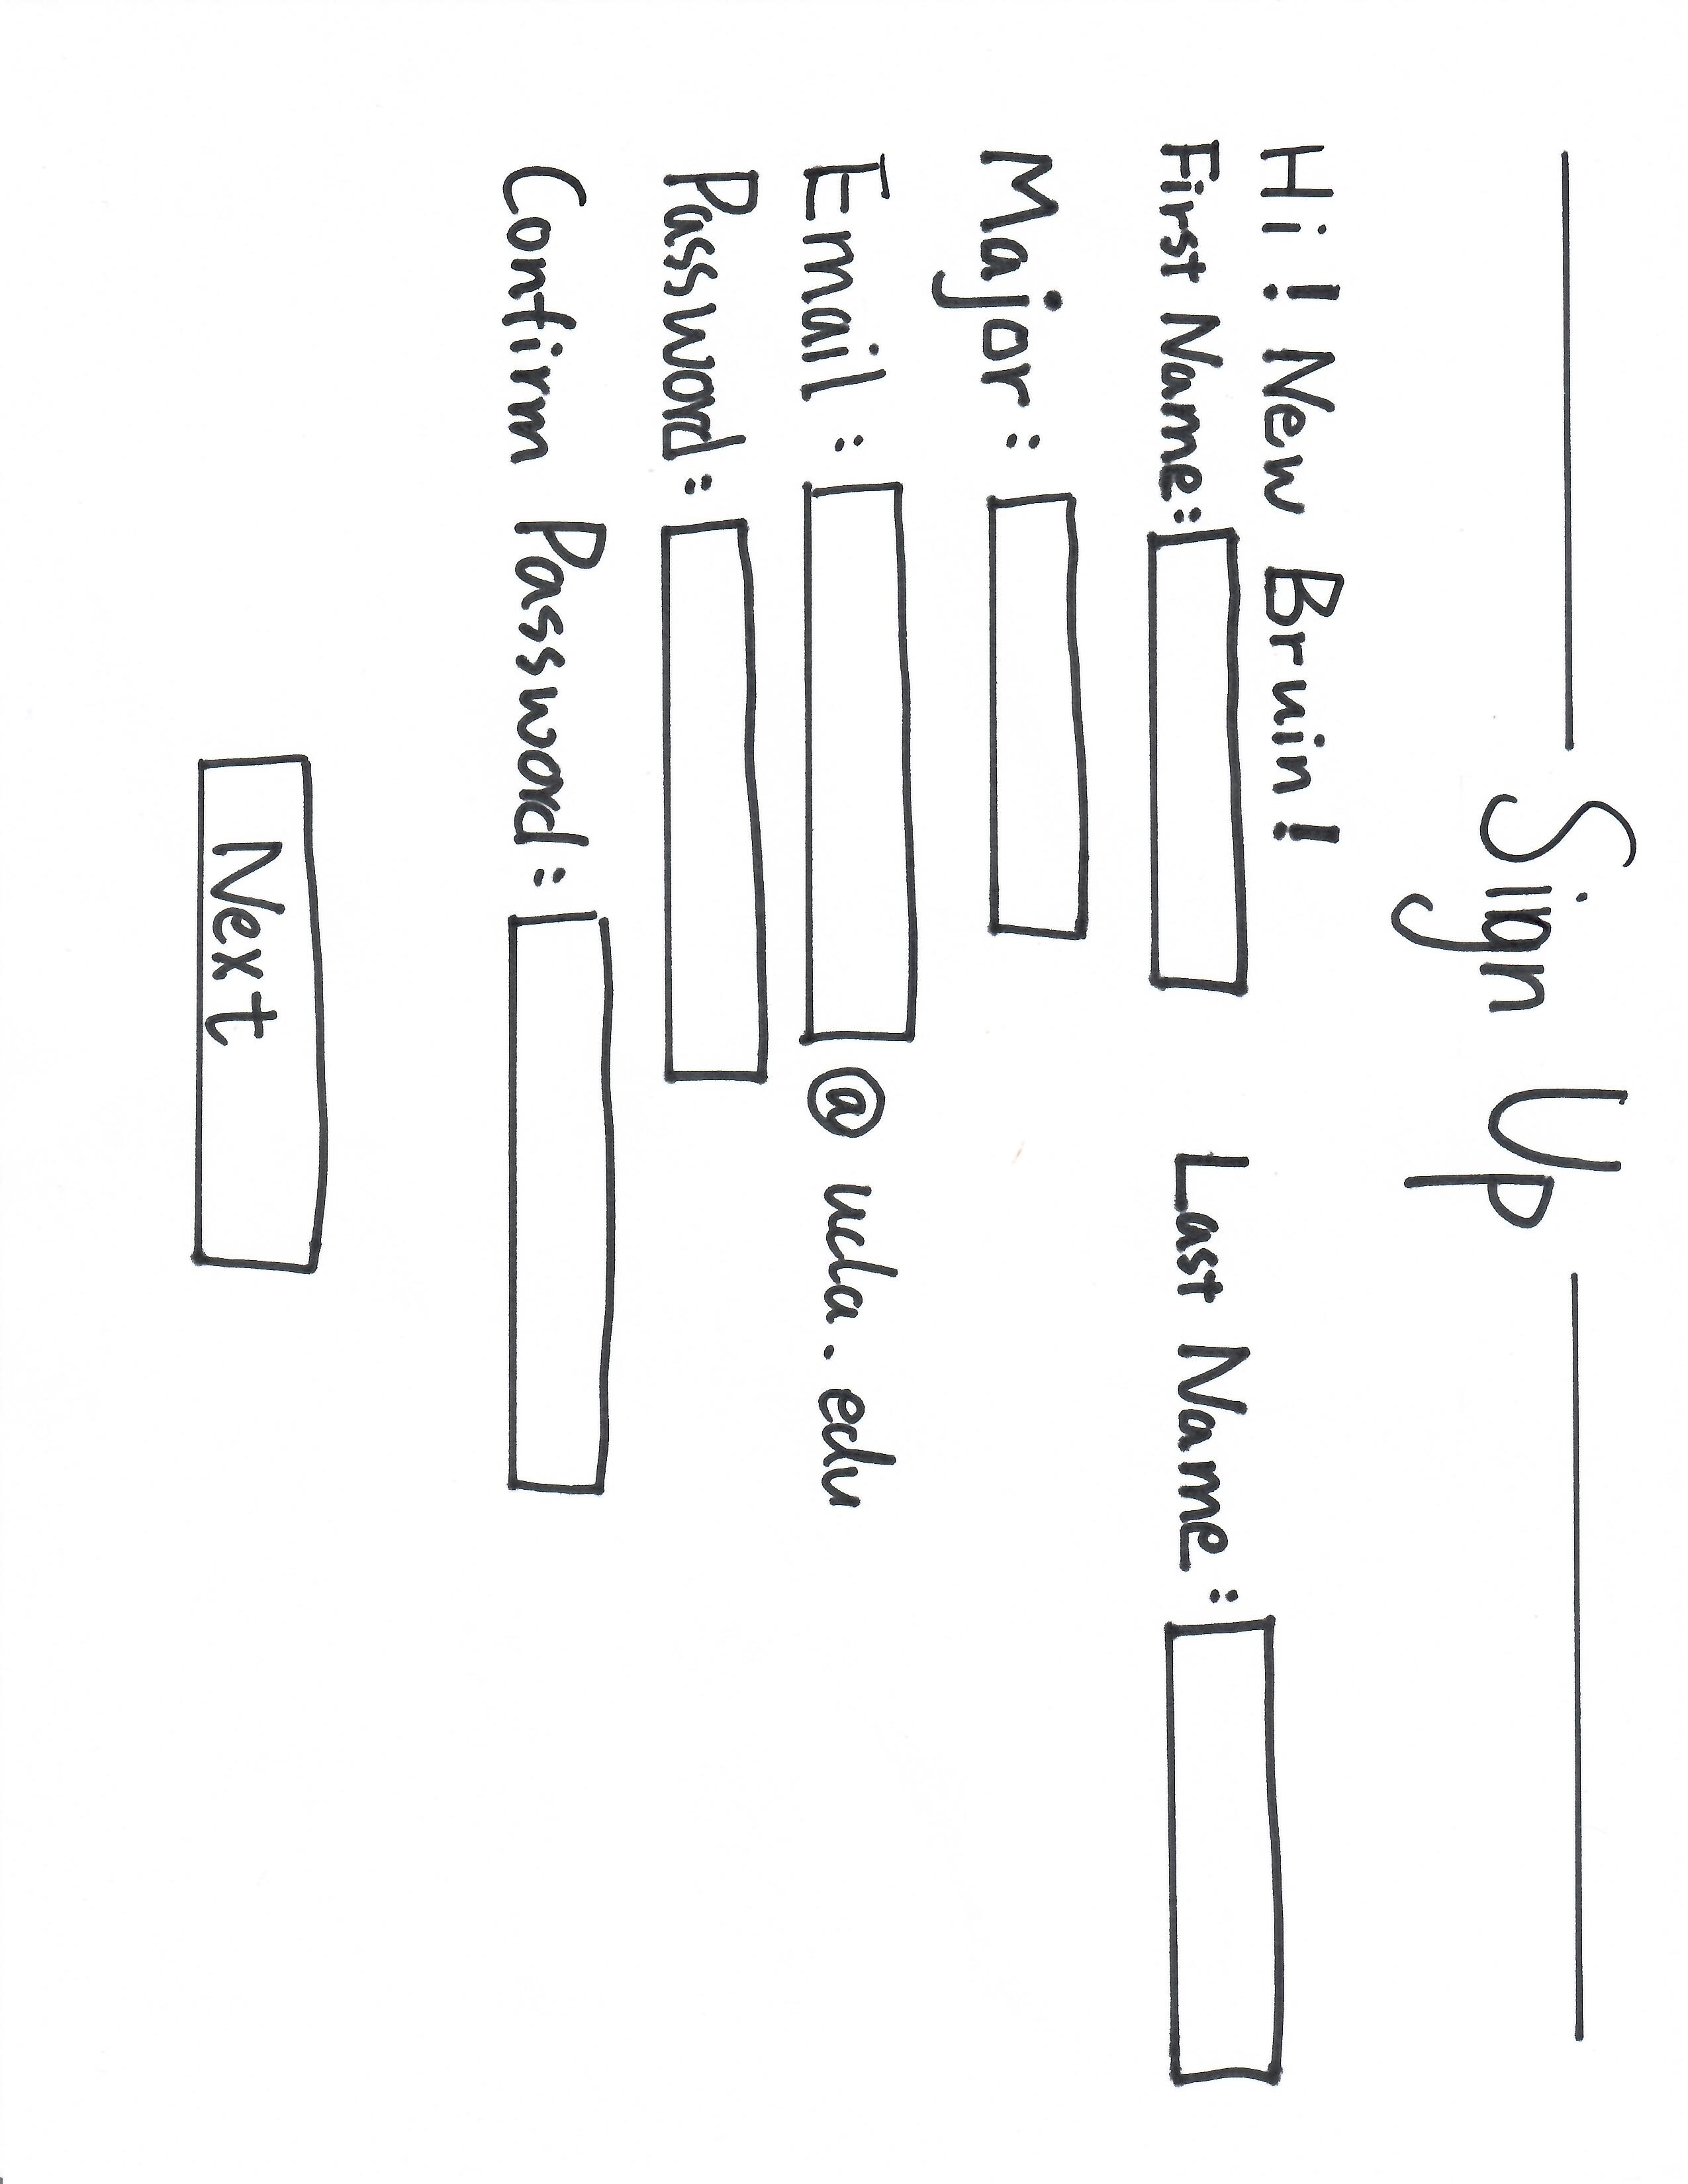 Sign Up
Hi! New Bruin!
First Name: Last Name:
Major:
Email: @ucla.edu
Password:
Confirm Password:
Next